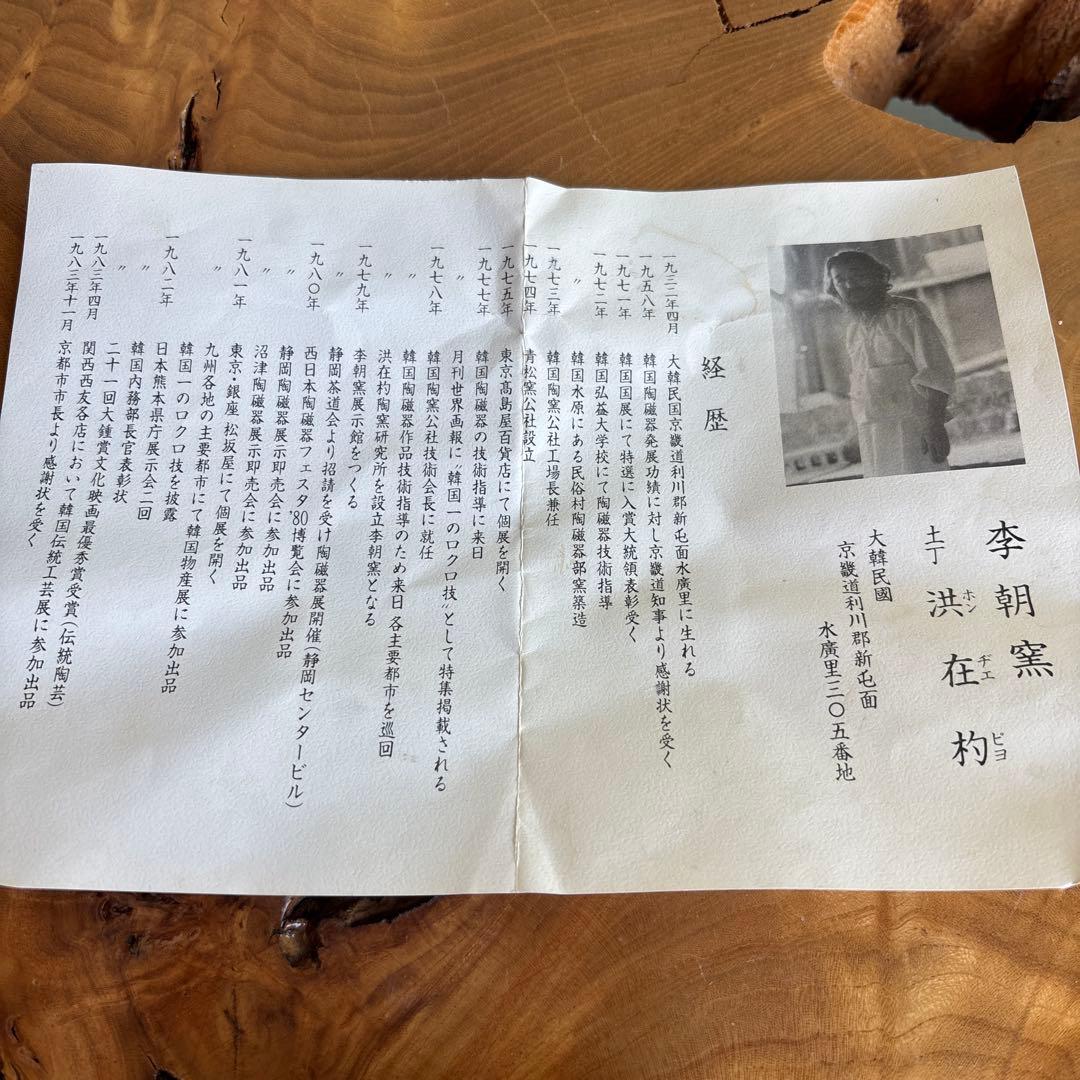 李朝窯
土丁 洪在杓
ホン ヂエ ピヨ
大韓民國
京畿道利川郡新屯面
水廣里三〇五番地
経歴
一九三二年四月 大韓民国京畿道利川郡新屯面水廣里に生れる
一九五八年 韓国陶磁器発展功績に対し京畿道知事より感謝状を受く
一九七一年 韓国国展にて特選に入賞大統領表彰受く
一九七二年 韓国弘益大学校にて陶磁器技術指導
〃 韓国水原にある民俗村陶磁器部窯築造
一九七三年 韓国陶窯公社工場長兼任
一九七四年 青松窯公社設立
一九七五年 東京髙島屋百貨店にて個展を開く
一九七七年 韓国陶磁器の技術指導に来日
〃 月刊世界画報に〝韓国一のロクロ技〟として特集掲載される
一九七八年 韓国陶窯公社技術会長に就任
〃 韓国陶磁器作品技術指導のため来日 各主要都市を巡回
〃 洪在杓陶窯研究所を設立李朝窯となる
一九七九年 李朝窯展示館をつくる
〃 静岡茶道会より招請を受け陶磁器展開催(静岡センタービル)
一九八〇年 西日本陶磁器フェスタ'80博覧会に参加出品
〃 静岡陶磁器展示即売会に参加出品
〃 沼津陶磁器展示即売会に参加出品
一九八一年 東京・銀座 松坂屋にて個展を開く
〃 九州各地の主要都市にて韓国物産展に参加出品
韓国一のロクロ技を披露
一九八二年 日本熊本県庁展示会二回
〃 韓国内務部長官表彰状
〃 二十一回大鐘賞文化映画最優秀賞受賞(伝統陶芸)
一九八三年四月 関西西友各店において韓国伝統工芸展に参加出品
一九八三年十一月 京都市市長より感謝状を受く